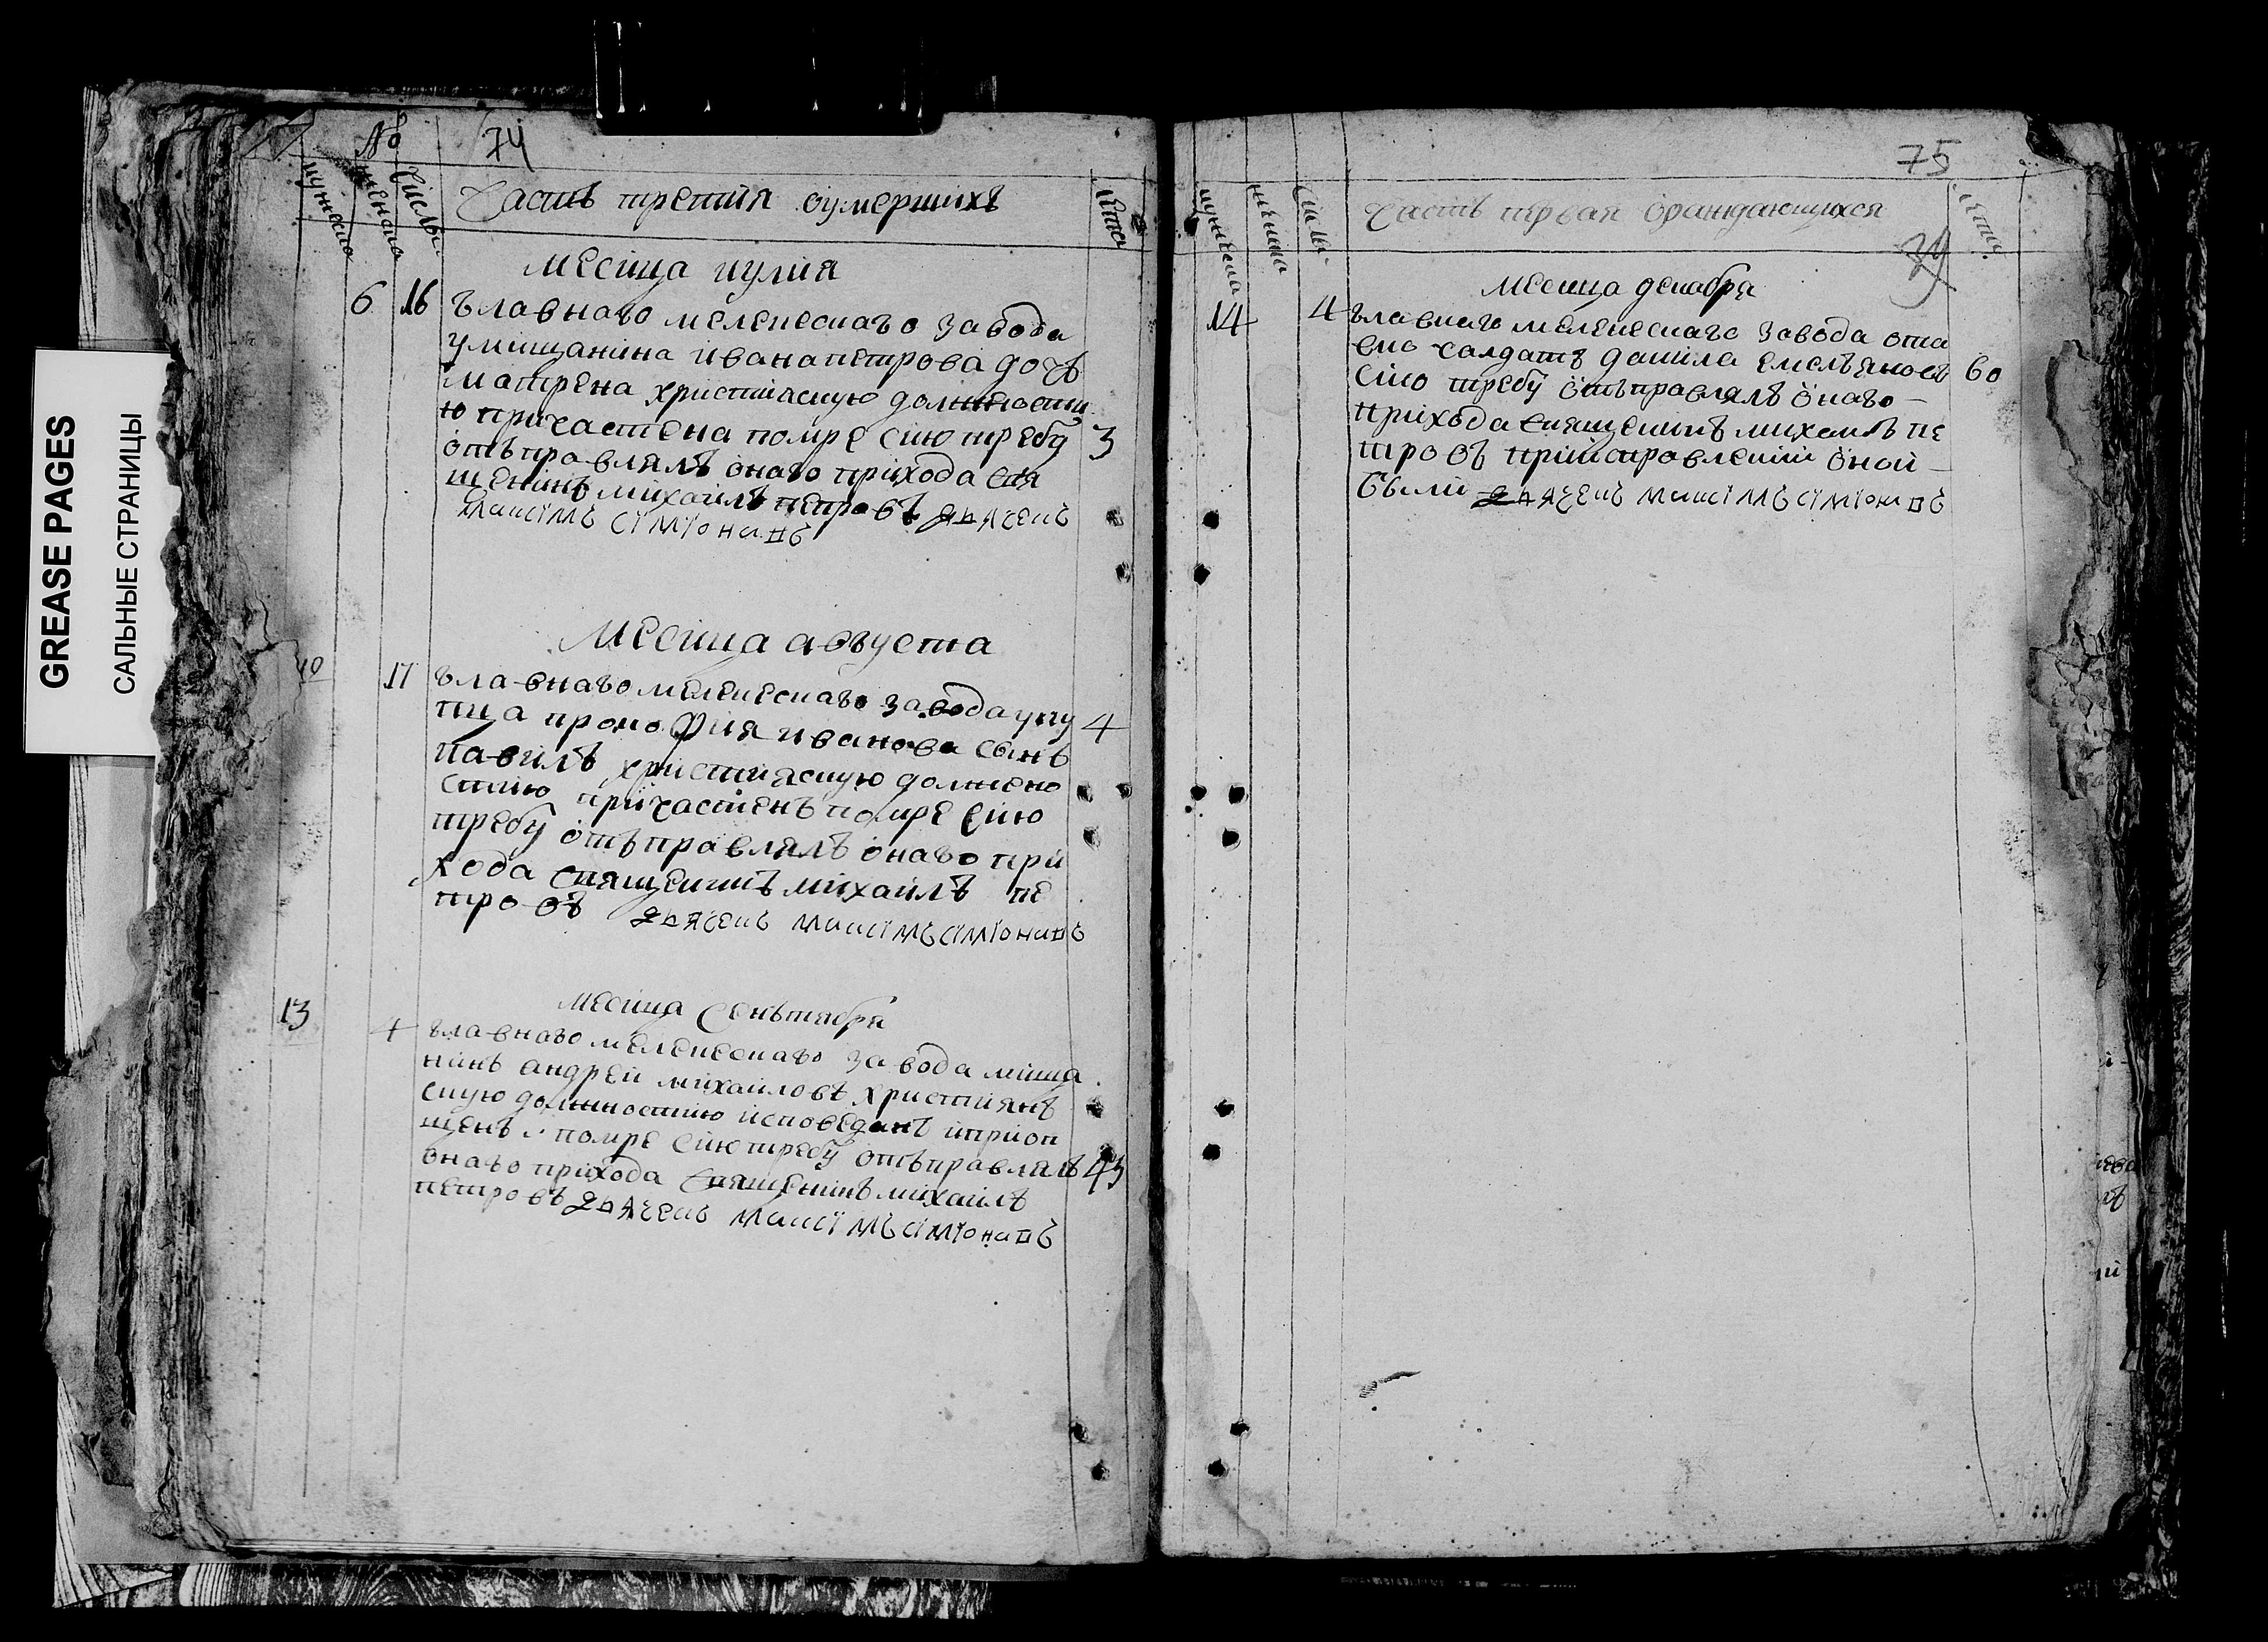 GREASE PAGES
САЛЬНЫЕ СТРАНИЦЫ
№
74
мужеска
женска
числы
Часть третия оумершихъ
лета
Месица иулия
6 16 главнаго мелекескаго завода
у мищанина ивана петрова дочь
матрена христиаскую должности
ю причастена помре сию требу 3
отъправлялъ онаго прихода свя
щеникъ михаилъ петровъ дьячекъ
максiмъ сiмiонавъ
Месица августа
10 17 главнаго мелекескаго завода у ку
пца прокофия иванова сынъ 4
павилъ христиаскую должено
стию причастенъ помре сию
требу отъправлялъ онаго при
хода священикъ михаилъ пе
тровъ дьячекъ максiмъ сiмiонавъ
месица сенътабря
13 4 главнаго мелекескаго завода мища
нинъ андрей михаиловъ християнъ
скую должностию исповеданъ и приоп
щенъ и помре сию требу отъправлялъ 43
онаго прихода священикъ михаилъ
петровъ дьячекъ максiмъ сiмiонавъ
75
мужеска
женска
числы
Часть первая ораждающихся
лета
39
месица декабря
14 4 главнаго мелекескаго завода отста
салдатъ данила емельяновъ 60
сию требу отъправлялъ онаго
прихода священикъ михаилъ пе
тровъ приисправлении оной
были дьячекъ максiмъ сiмiонавъ